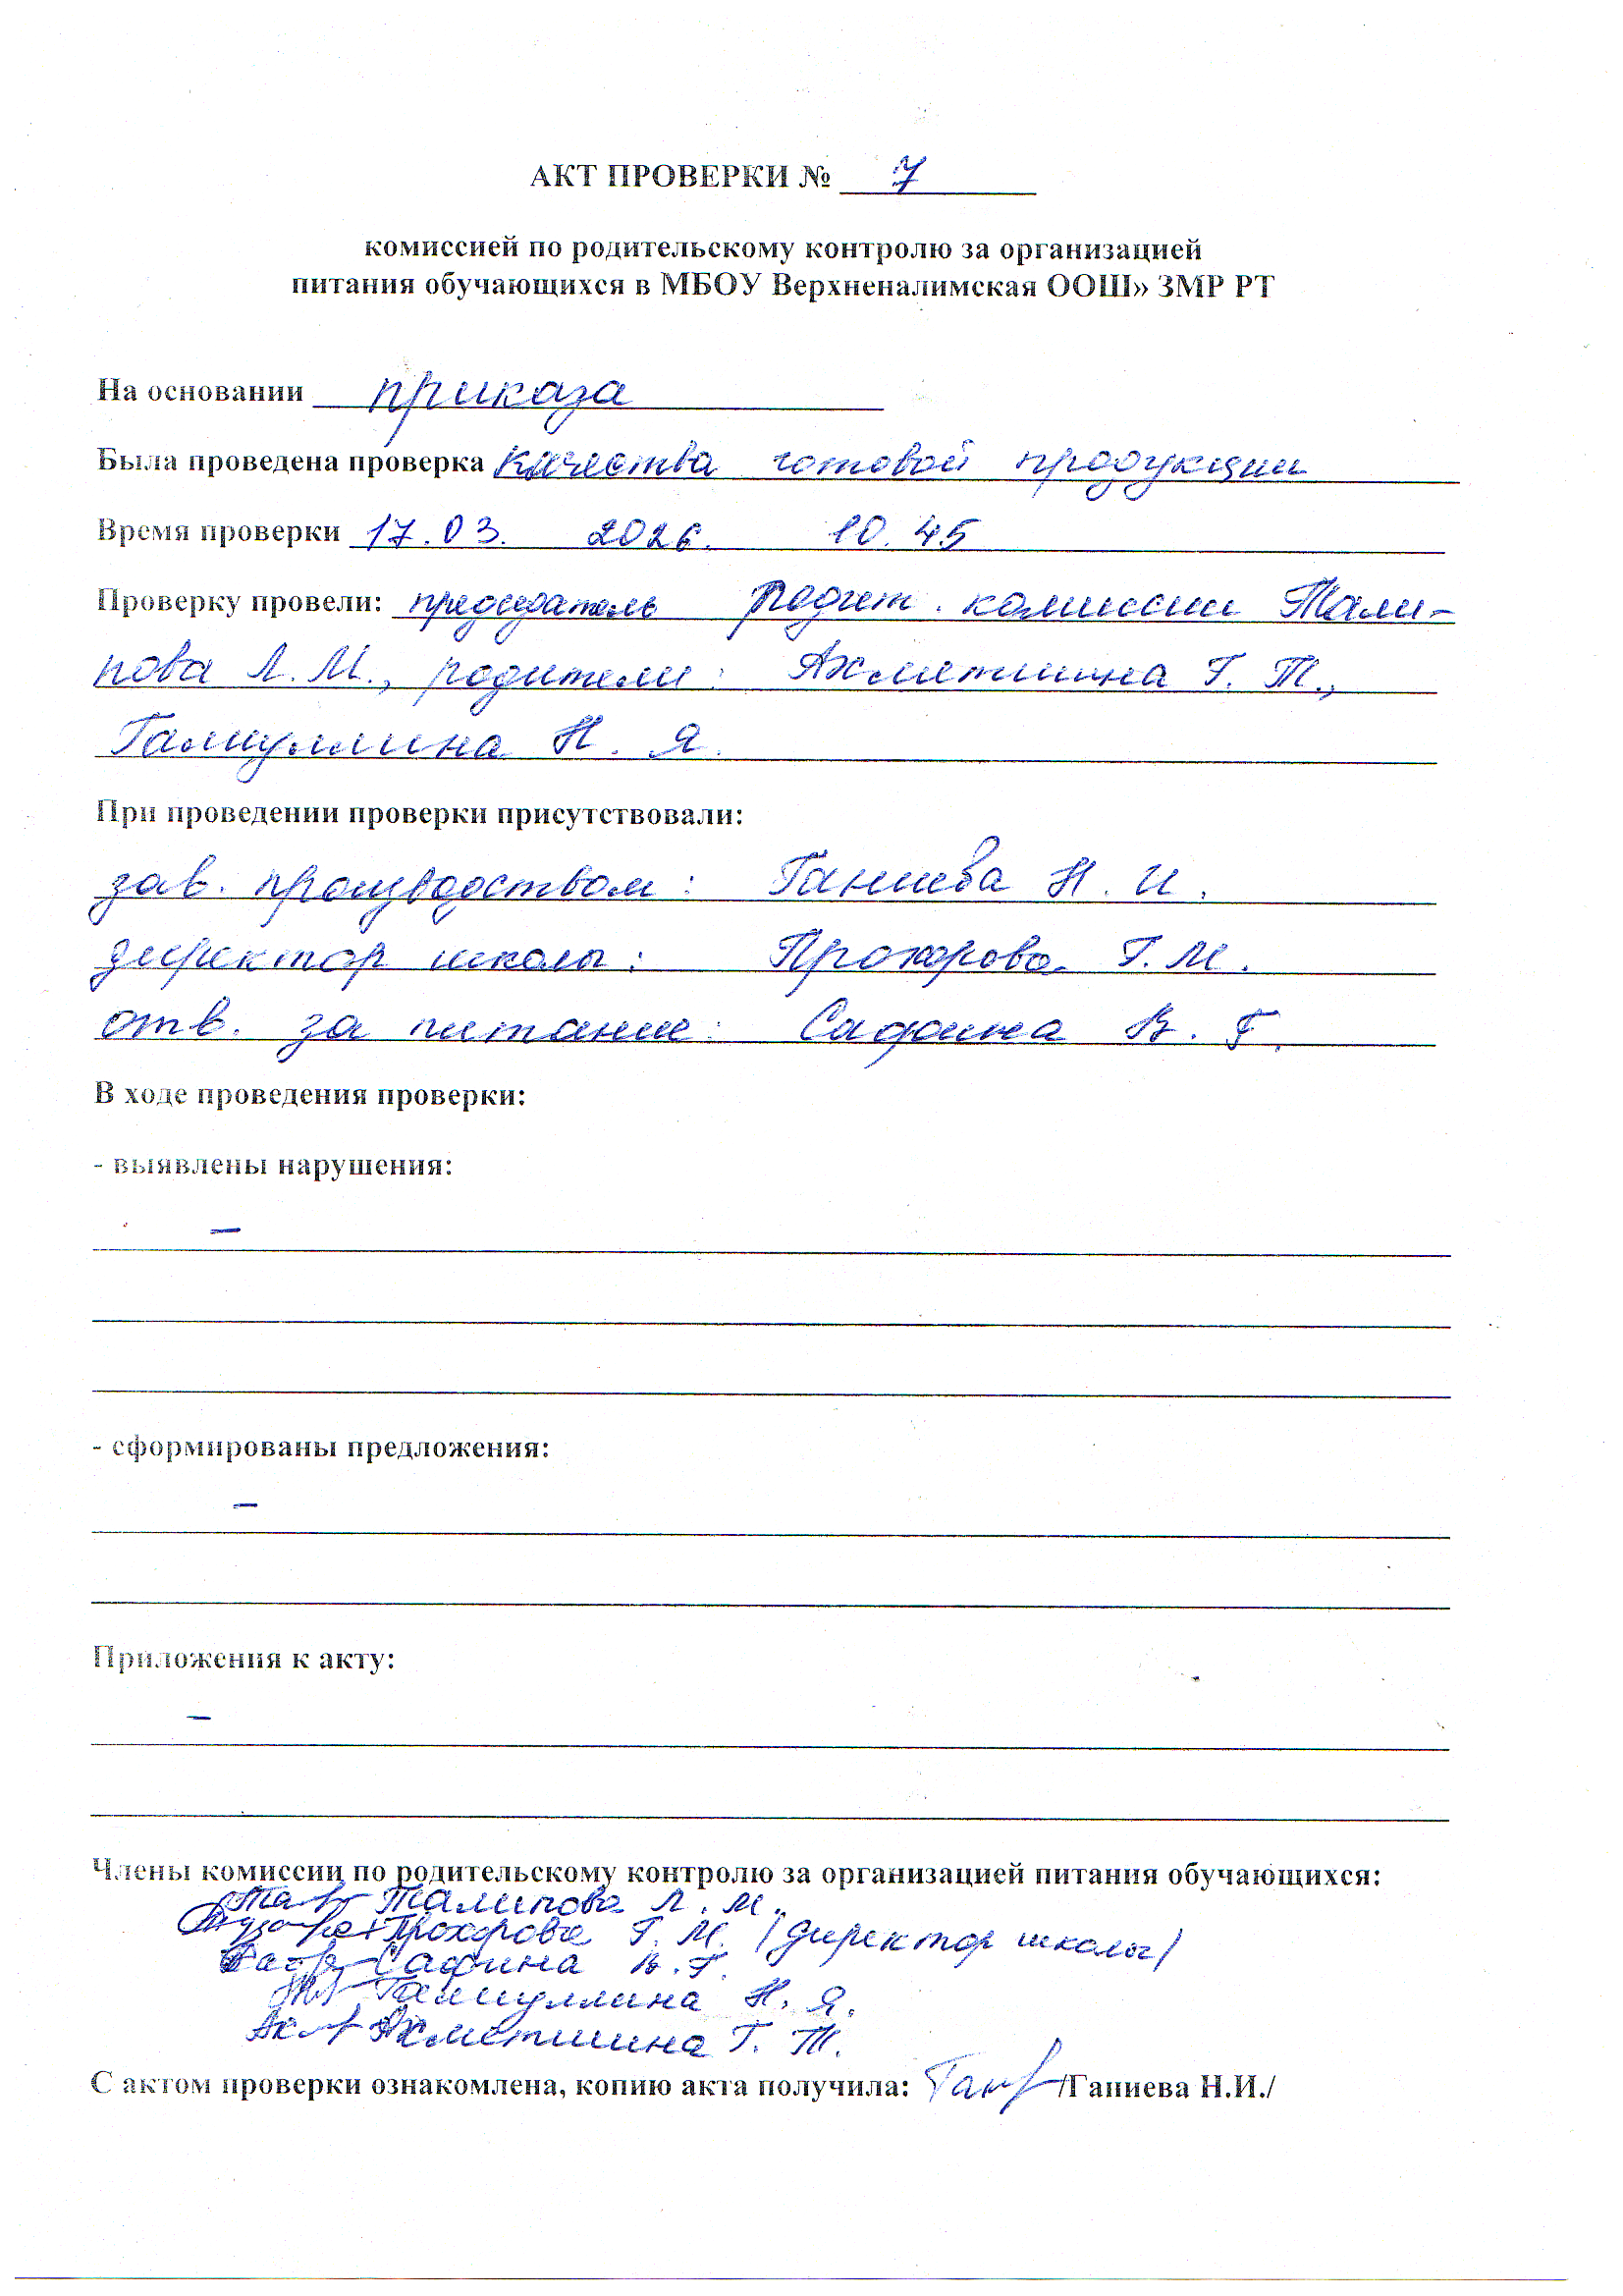 АКТ ПРОВЕРКИ № 7
комиссией по родительскому контролю за организацией
питания обучающихся в МБОУ Верхненалимская ООШ» ЗМР РТ
На основании приказа
Была проведена проверка качества готовой продукции
Время проверки 17.03. 2026. 10.45
Проверку провели: председатель родит. комиссии Тали-
пова Л.М., родители: Ахметшина Г. Т.,
Галиуллина Н. Я.
При проведении проверки присутствовали:
зав. производством: Ганиева Н. И.
директор школы: Прохорова Г.М.
отв. за питание: Сафина В. Г.
В ходе проведения проверки:
- выявлены нарушения:
–
- сформированы предложения:
–
Приложения к акту:
–
Члены комиссии по родительскому контролю за организацией питания обучающихся:
Талипова Л. М.
Прохорова Г. М. /директор школы/
Сафина В. Г.
Галиуллина Н. Я.
Ахметшина Г. Т.
С актом проверки ознакомлена, копию акта получила: /Ганиева Н.И./